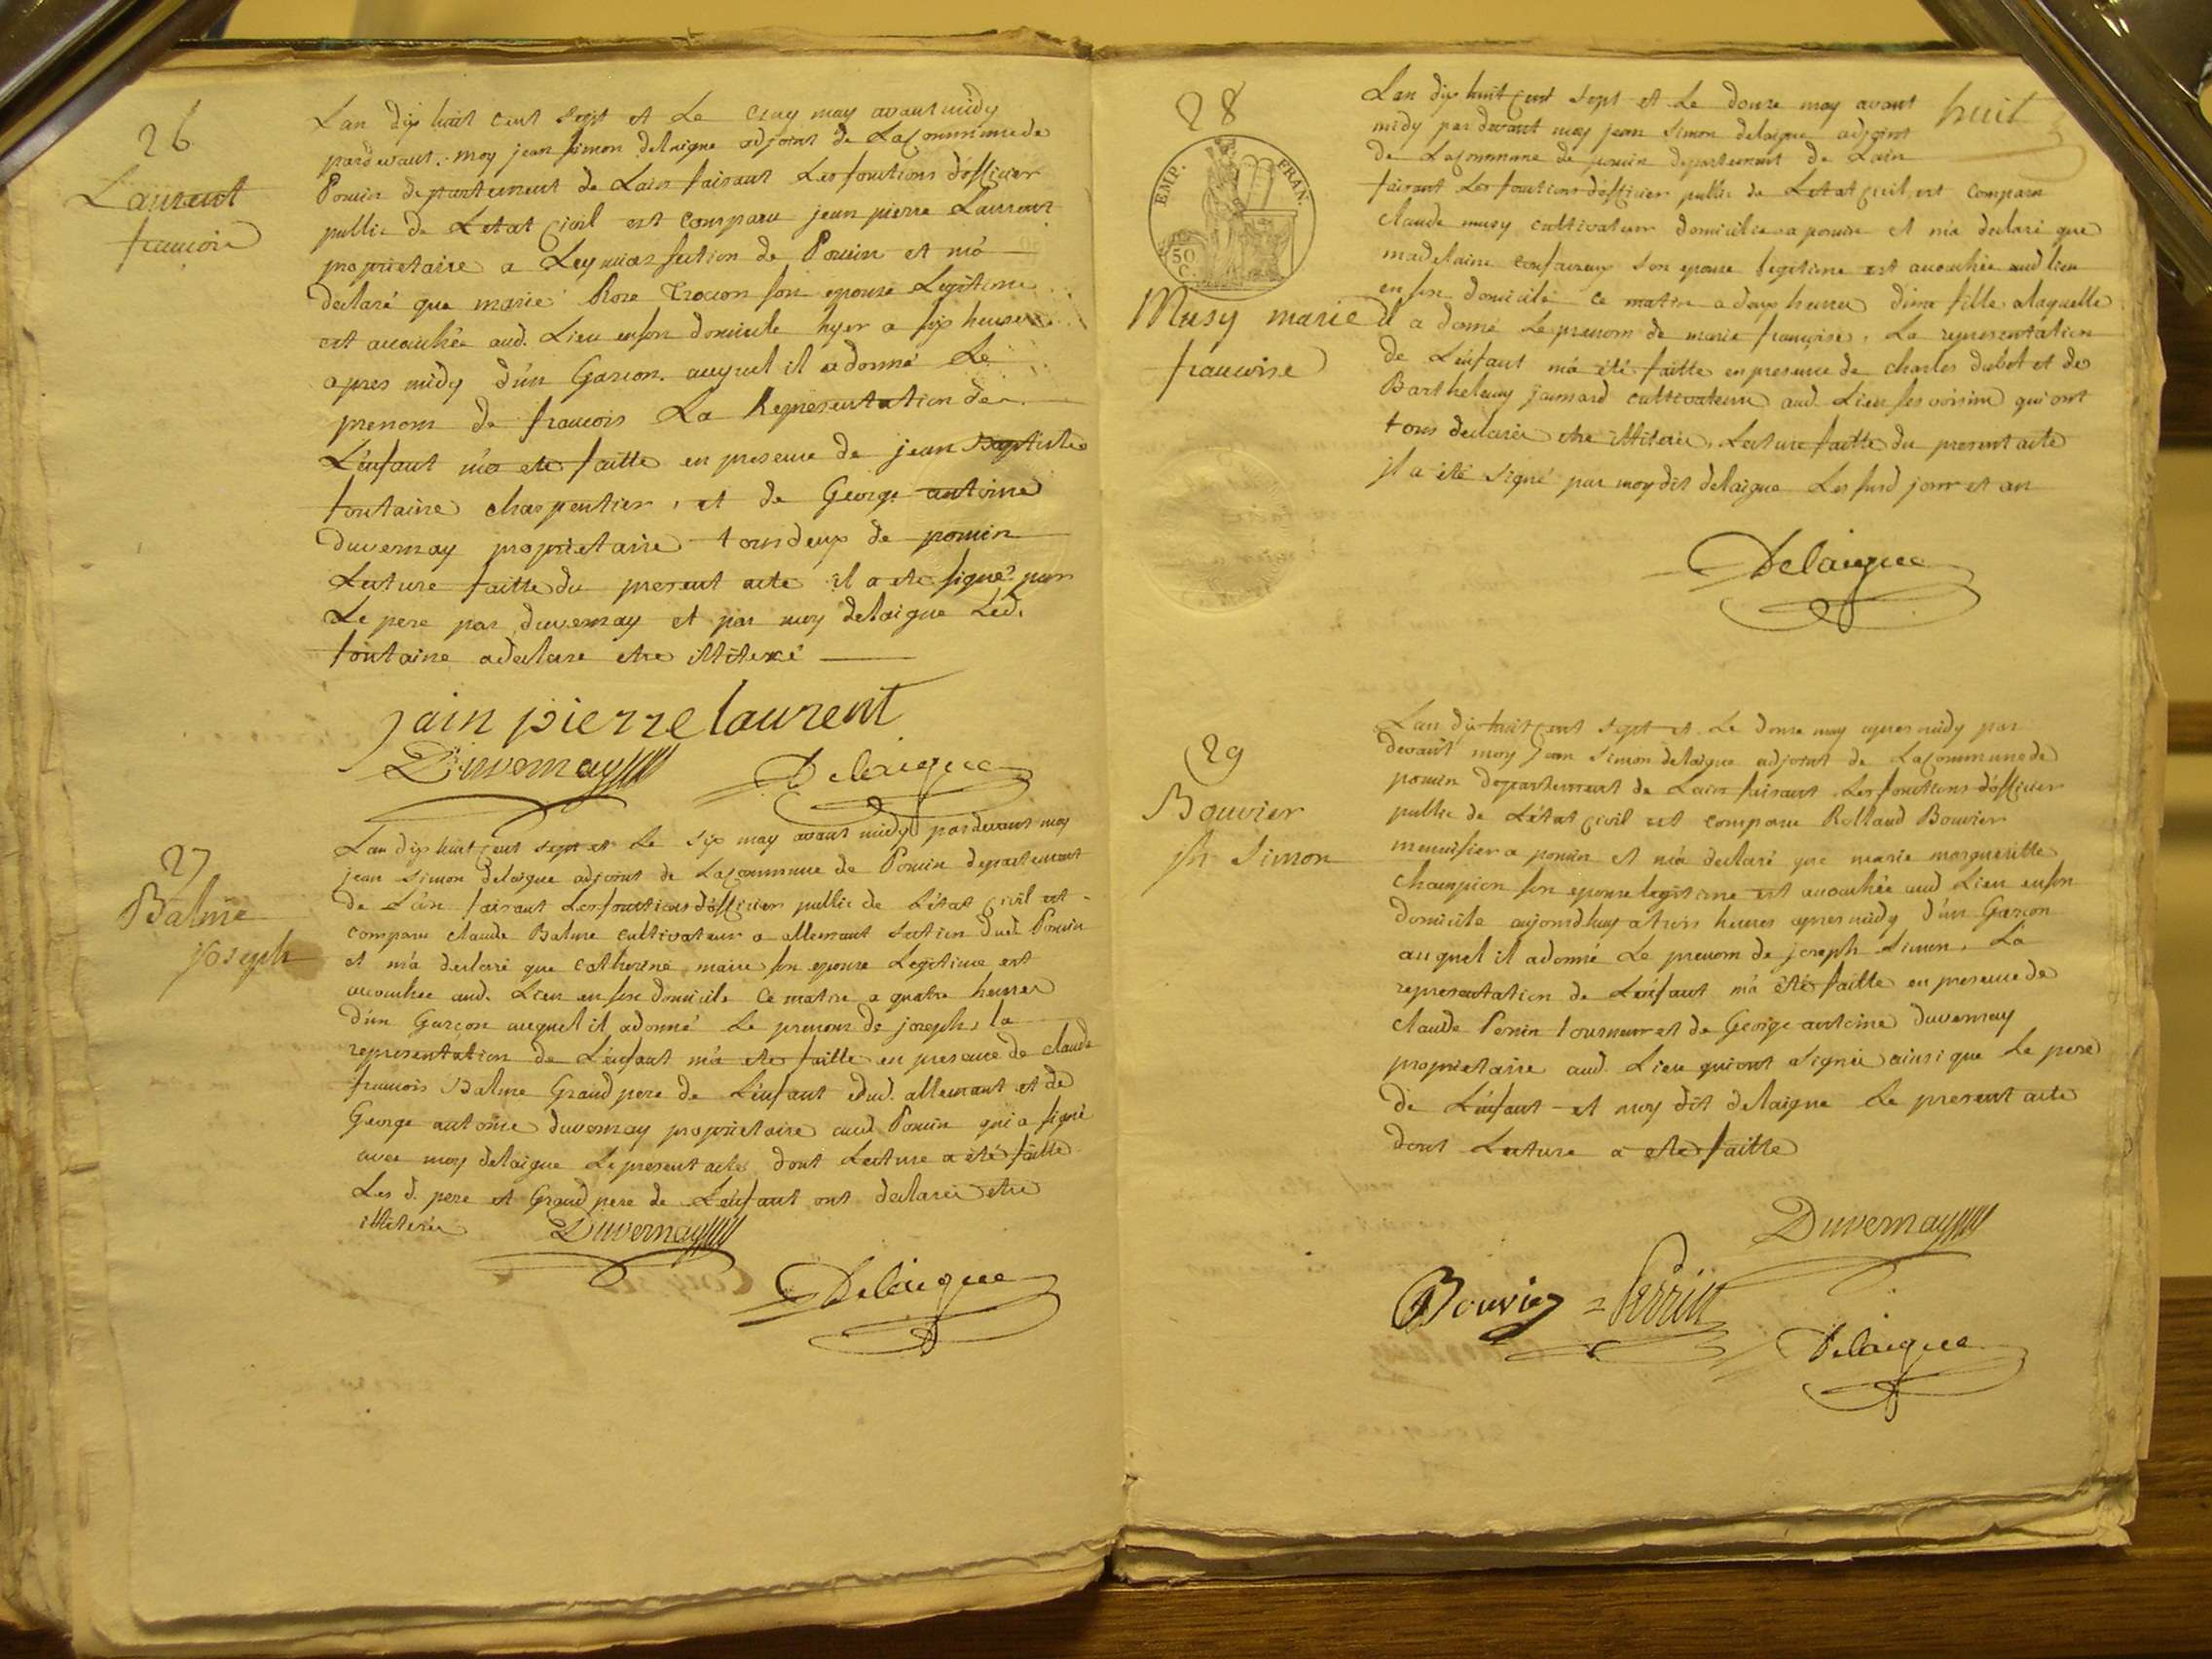 26
Laurent
francois
Lan dix huit cent sept et Le cinq may avant midy
pardevant moy jean simon delaigue adjoint de La Commune de
Poncin departement de Lain faisant Les fonctions d'officier
public de Letat civil est comparu jean pierre Laurent
proprietaire a Leymiat section de Poncin et m'a
declaré que marie Rose son epouse Legitime
est accouchée aud. Lieu en son domicile hyer a six heures
apres midy d'un Garcon auquel il a donné Le
prenom de francois La Representation de
L'enfant m'a ete faitte en presence de jean Baptiste
fontaine charpentier, et de George antoine
duvernay proprietaire tous deux de poncin
Lecture faitte du present acte il a ete signé par
Le pere par duvernay et par moy delaigue Led.
fontaine a declare etre illiteré
jain pierre laurent
Duvernay
Delaigue
27
Balme
joseph
Lan dix huit cent sept et Le six may avant midy pardevant moy
jean simon delaigue adjoint de La Commune de Poncin departement
de L'ain faisant Les fonctions d'officier public de L'état civil est
comparu claude Balme cultivateur a allement section dud. Poncin
et m'a declaré que catherine maire son epouse Legitime est
accouchee aud. Lieu en son domicile ce matin a quatre heures
d'un Garcon auquel il a donné Le prenom de joseph, la
representation de L'enfant m'a ete faitte en presence de claude
francois Balme Grand pere de L'enfant dud. allement et de
George antoine duvernay proprietaire aud. Poncin qui a signé
avec moy delaigue Le present acte dont Lecture a été faitte
Les d. pere et Grand pere de L'enfant ont declaré etre
illiterés
Duvernay
Delaigue
28
huit
EMP. FRAN.
50
C.
Musy marie
francoise
Lan dix huit cent sept et Le douze may avant
midy par devant moy jean simon delaigue adjoint
de La Commune de poncin departement de Lain
faisant Les fonctions d'officier public de Letat civil est comparu
claude musy cultivateur domicilié a poncin et m'a declaré que
madelaine son epouse legitime est accouchée aud lieu
en son domicile ce matin a deux heures d'une fille a laquelle
il a donné Le prenom de marie françoise, La representation
de L'enfant m'a été faitte en presence de charles dubot et de
Barthelemy cultivateurs aud. Lieu ses voisins qui ont
tous declarés etre illiterés, Lecture faitte du present acte
il a été signé par moy dit delaigue Les susd jour et an
Delaigue
29
Bouvier
jh Simon
Lan dix huit cent sept et Le douze may apres midy par
devant moy jean simon delaigue adjoint de La Commune de
poncin departement de Lain faisant Les fonctions d'officier
public de L'état civil est comparu Rolland Bouvier
menuisier a poncin et m'a declaré que marie margueritte
champion son epouse legitime est accouchée aud Lieu en son
domicile aujourdhuy a trois heures apres midy d'un Garcon
auquel il a donné Le prenom de joseph simon, La
representation de L'enfant m'a été faitte en presence de
claude Perrin tourneur et de George antoine duvernay
proprietaire aud. Lieu qui ont signé ainsi que Le pere
de L'enfant et moy dit delaigue Le present acte
dont Lecture a ete faitte
Duvernay
Bouvier Perrin
Delaigue